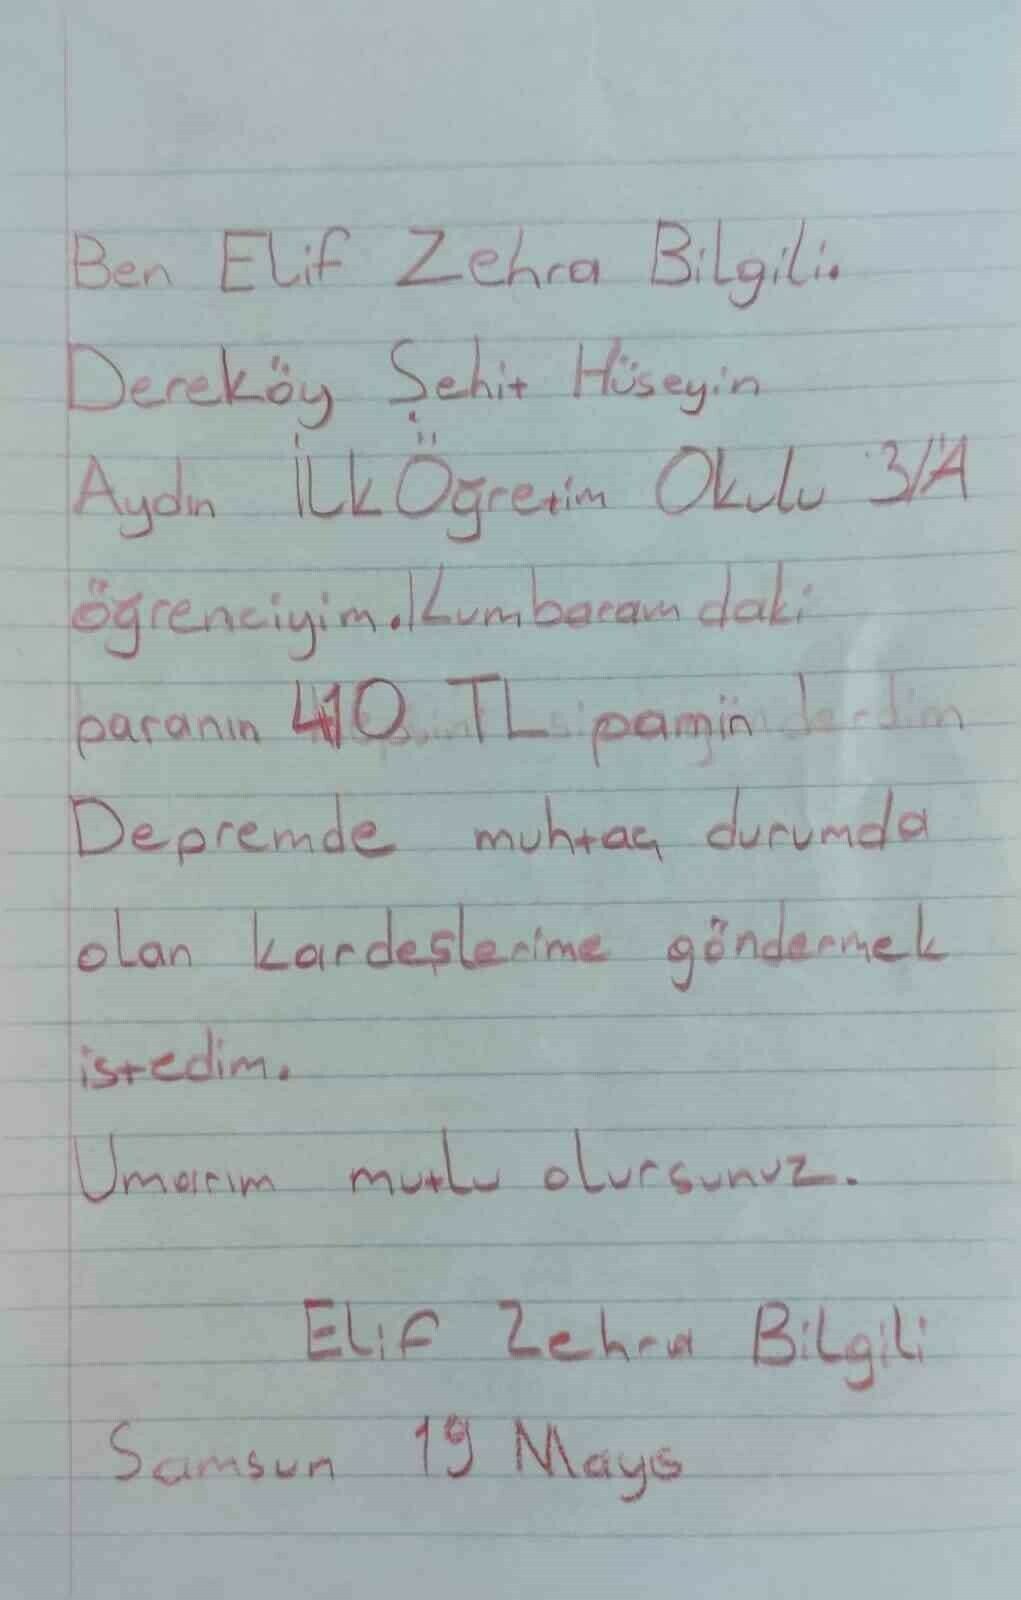 Ben Elif Zehra Bilgili.
Dereköy Şehit Hüseyin
Aydın İlk Öğretim Okulu 3/A
öğrenciyim. Kumbaram daki
paranın 410 TL
Depremde muhtaç durumda
olan kardeşlerime göndermek
istedim.
Umarım mutlu olursunuz.
Elif Zehra Bilgili
Samsun 19 Mayıs